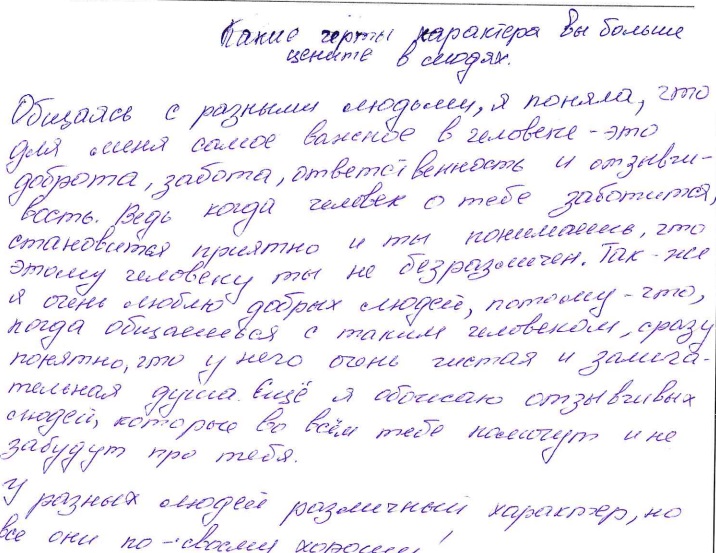 Какие черты характера вы больше
цените в людях.
Общаясь с разными людьми, я поняла, что
для меня самое важное в человеке - это
доброта, забота, ответственность и отзывчи-
вость. Ведь когда человек о тебе заботится,
становится приятно и ты понимаешь, что
этому человеку ты не безразличен. Так-же
я очень люблю добрых людей, потому-что,
когда общаешься с таким человеком, сразу
понятно, что у него очень чистая и замеча-
тельная душа. Ещё я обожаю отзывчивых
людей, которые во всём тебе помогут и не
забудут про тебя.
У разных людей различный характер, но
все они по-своему хорошие!